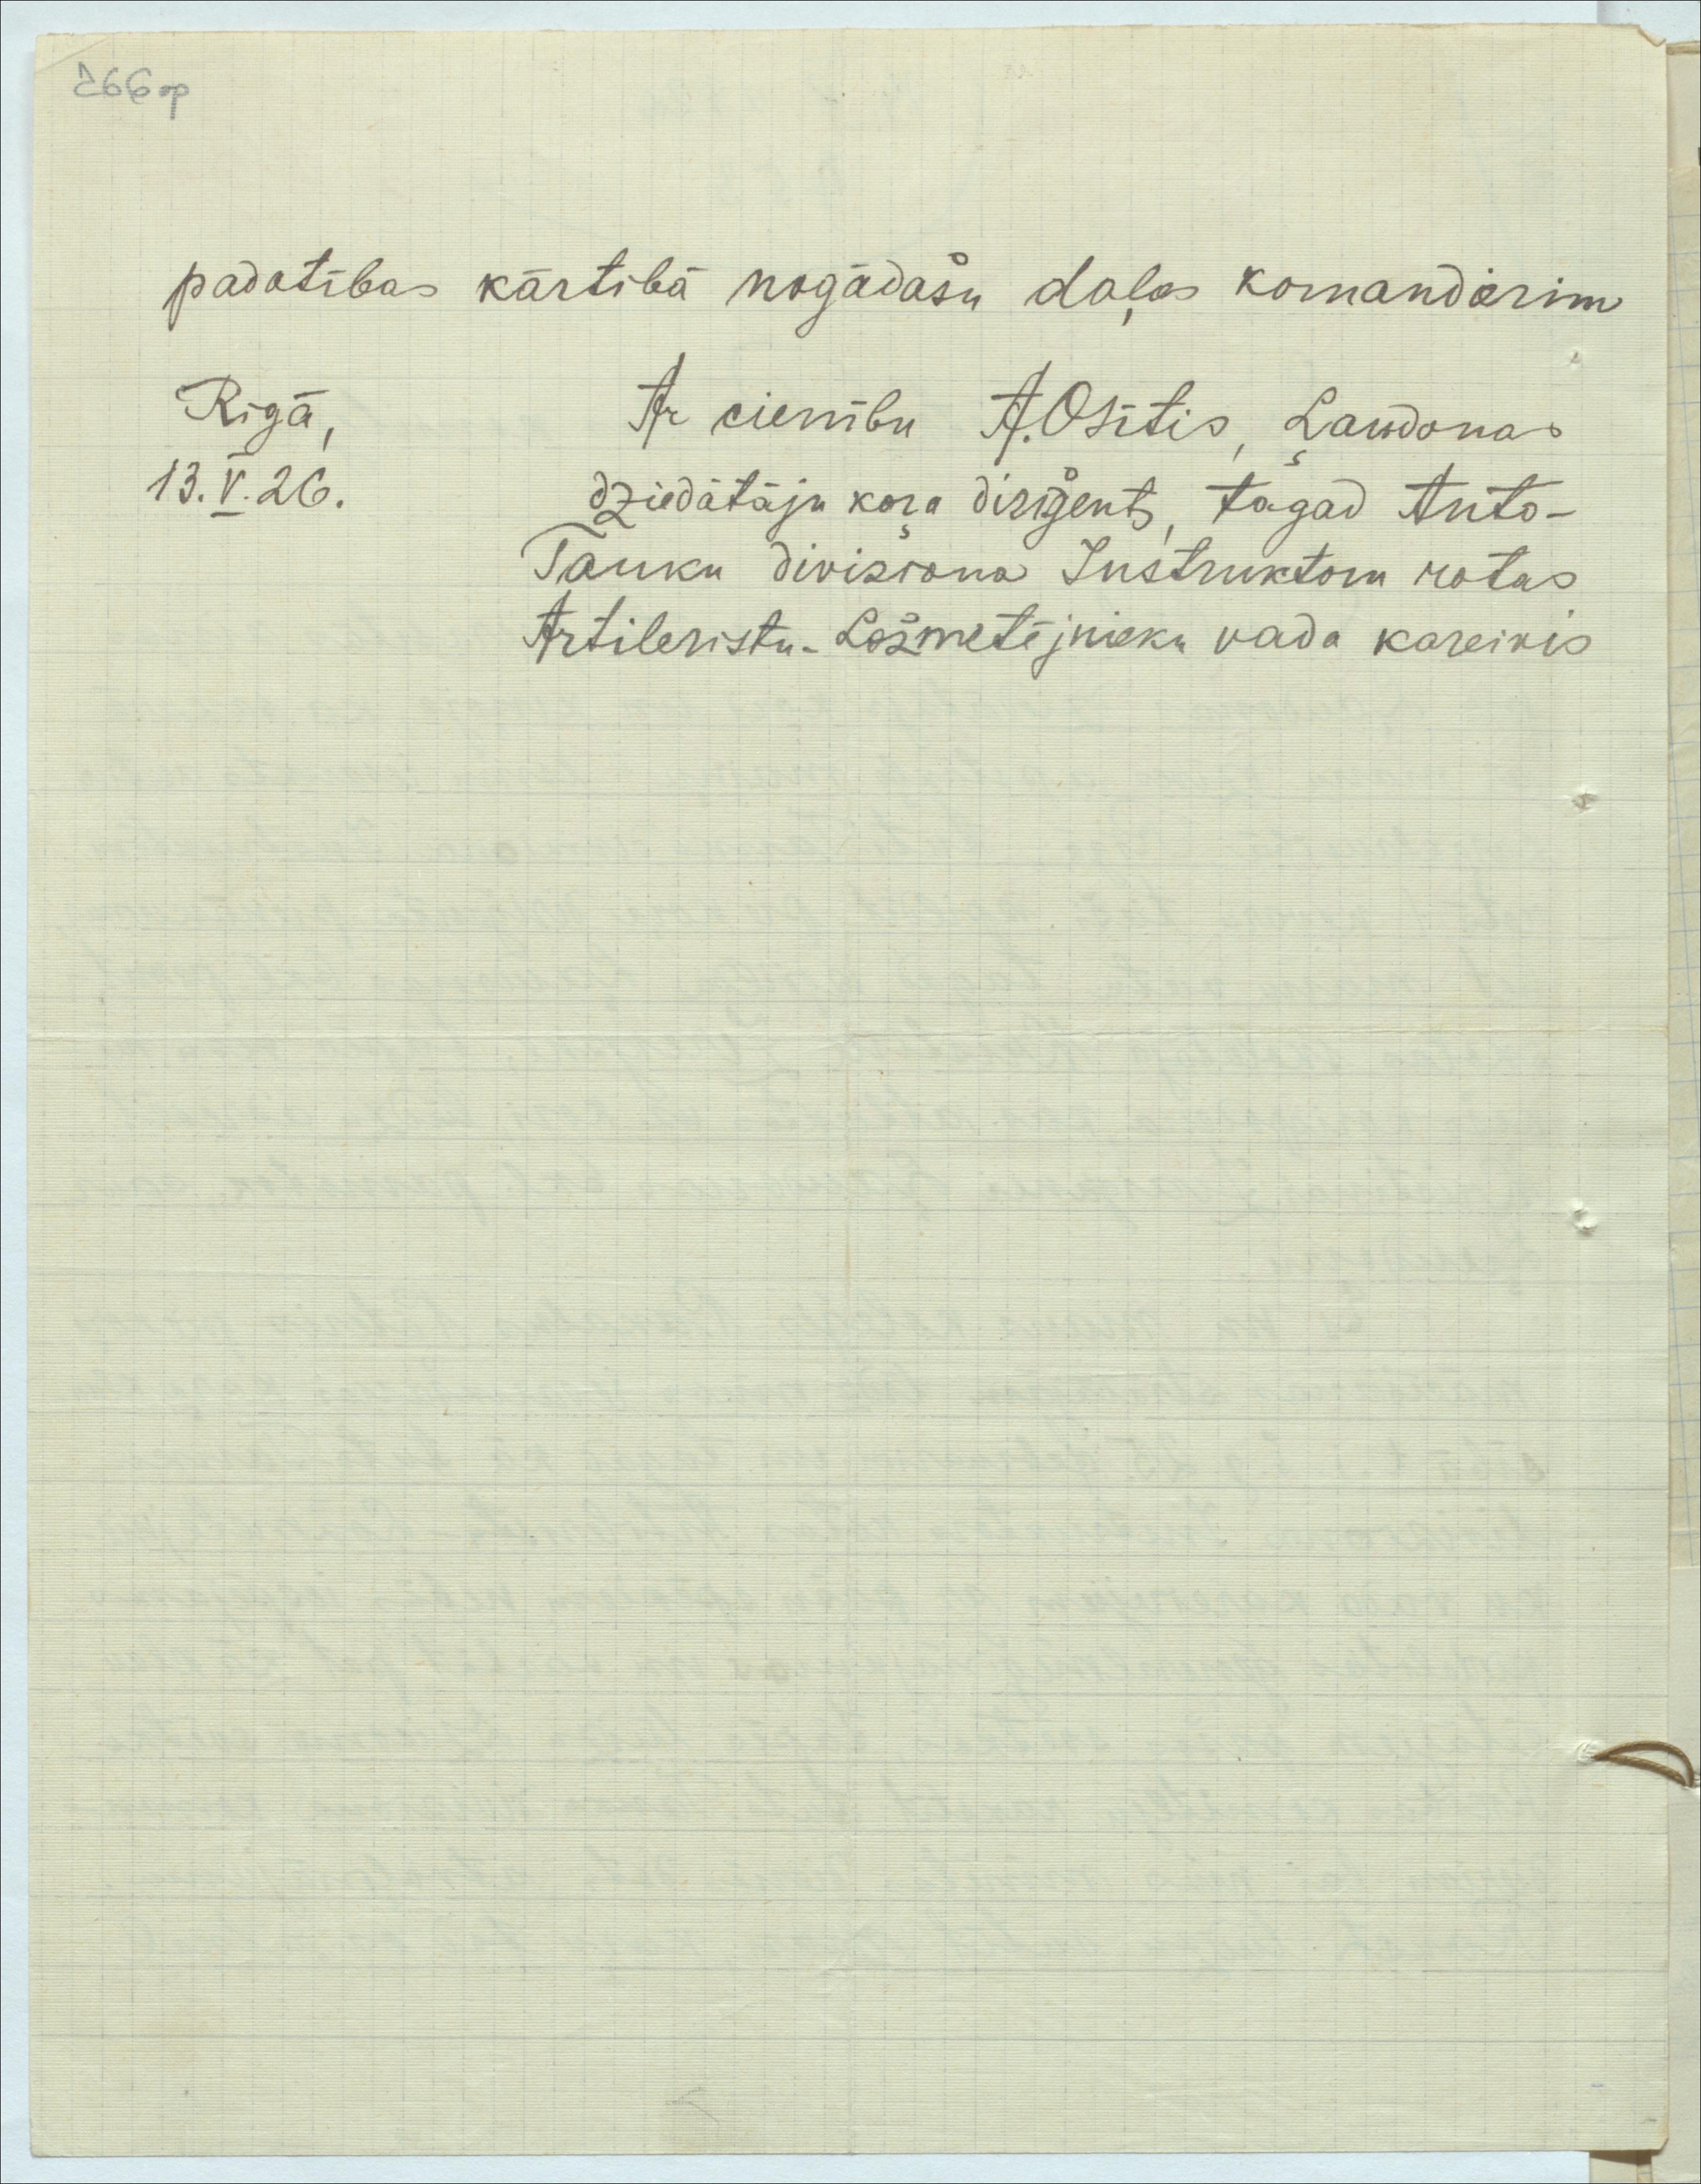 266 op
padotības kārtībā nogādašu daļas komandierim
Rīgā,
13.V.26.
Ar cienību A. Osītis, Ļaudonas
dziedātāju koŗa diriģents, tagad Auto-
Tanku divisiona Instruktoru rotas
Artileristu-Ložmetējnieku vada kareivis